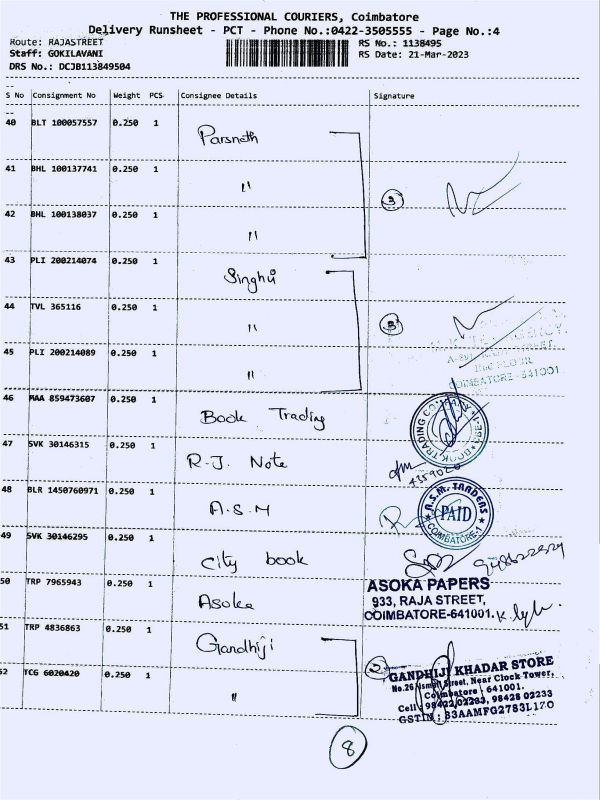 THE PROFESSIONAL COURIERS, Coimbatore
Delivery Runsheet - PCT - Phone No.:0422-3505555 - Page No.:4
Route: RAJASTREET RS No.: 1138495
Staff: GOKILAVANI RS Date: 21-Mar-2023
DRS No.: DCJB113849504
S No Consignment No Weight PCS Consignee Details Signature
40 BLT 100057557 0.250 1 Parsnath
41 BHL 100137741 0.250 1 "
3
42 BHL 100138037 0.250 1 "
43 PLI 200214074 0.250 1 Singhvi
44 TVL 365116 0.250 1 "
3
45 PLI 200214089 0.250 1 "
2nd FLOOR
COIMBATORE - 641001
46 MAA 859473607 0.250 1 Book Trading
BOOK TRADING COMPANY
47 SVK 30146315 0.250 1 R.J. Note
48 BLR 1450760971 0.250 1 A.S.M
A.S.M. TRADERS
PAID
COIMBATORE-1
49 SVK 30146295 0.250 1 City book
50 TRP 7965943 0.250 1 Asoka
ASOKA PAPERS
933, RAJA STREET,
COIMBATORE-641001.
51 TRP 4836863 0.250 1 Gandhiji
52 TCG 6020420 0.250 1 "
2
GANDHIJI KHADAR STORE
Street, Near Clock Tower,
Coimbatore - 641001.
Cell : 98422 02233, 98428 02233
GSTIN : 33AAMFG2783L1ZO
8